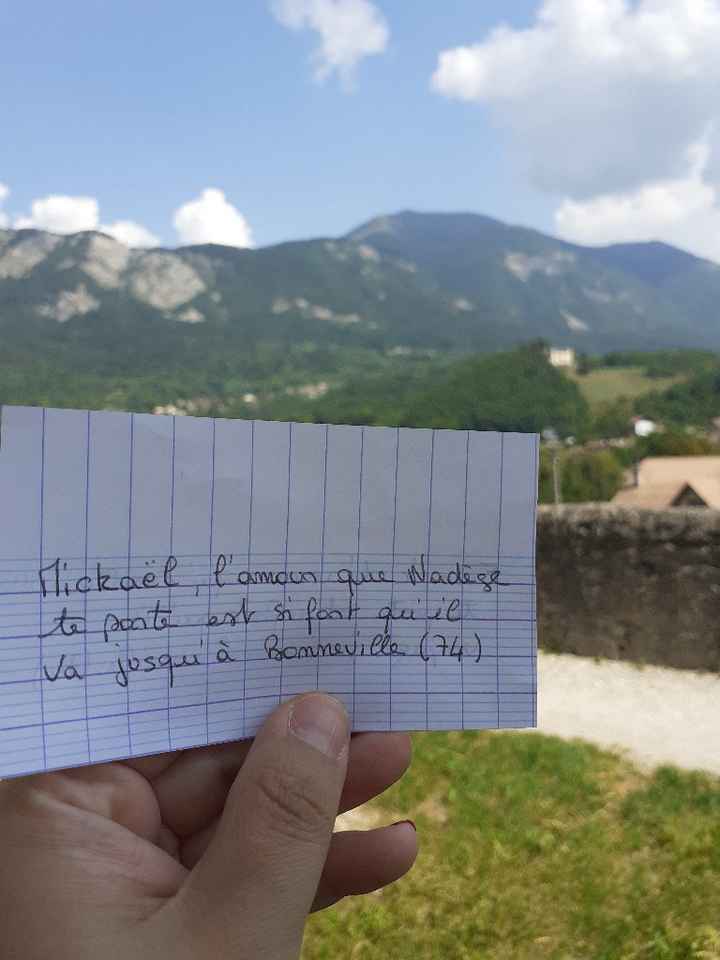 Mickaël, l'amour que Nadège
te porte est si fort qu'il
va jusqu'à Bonneville (74)